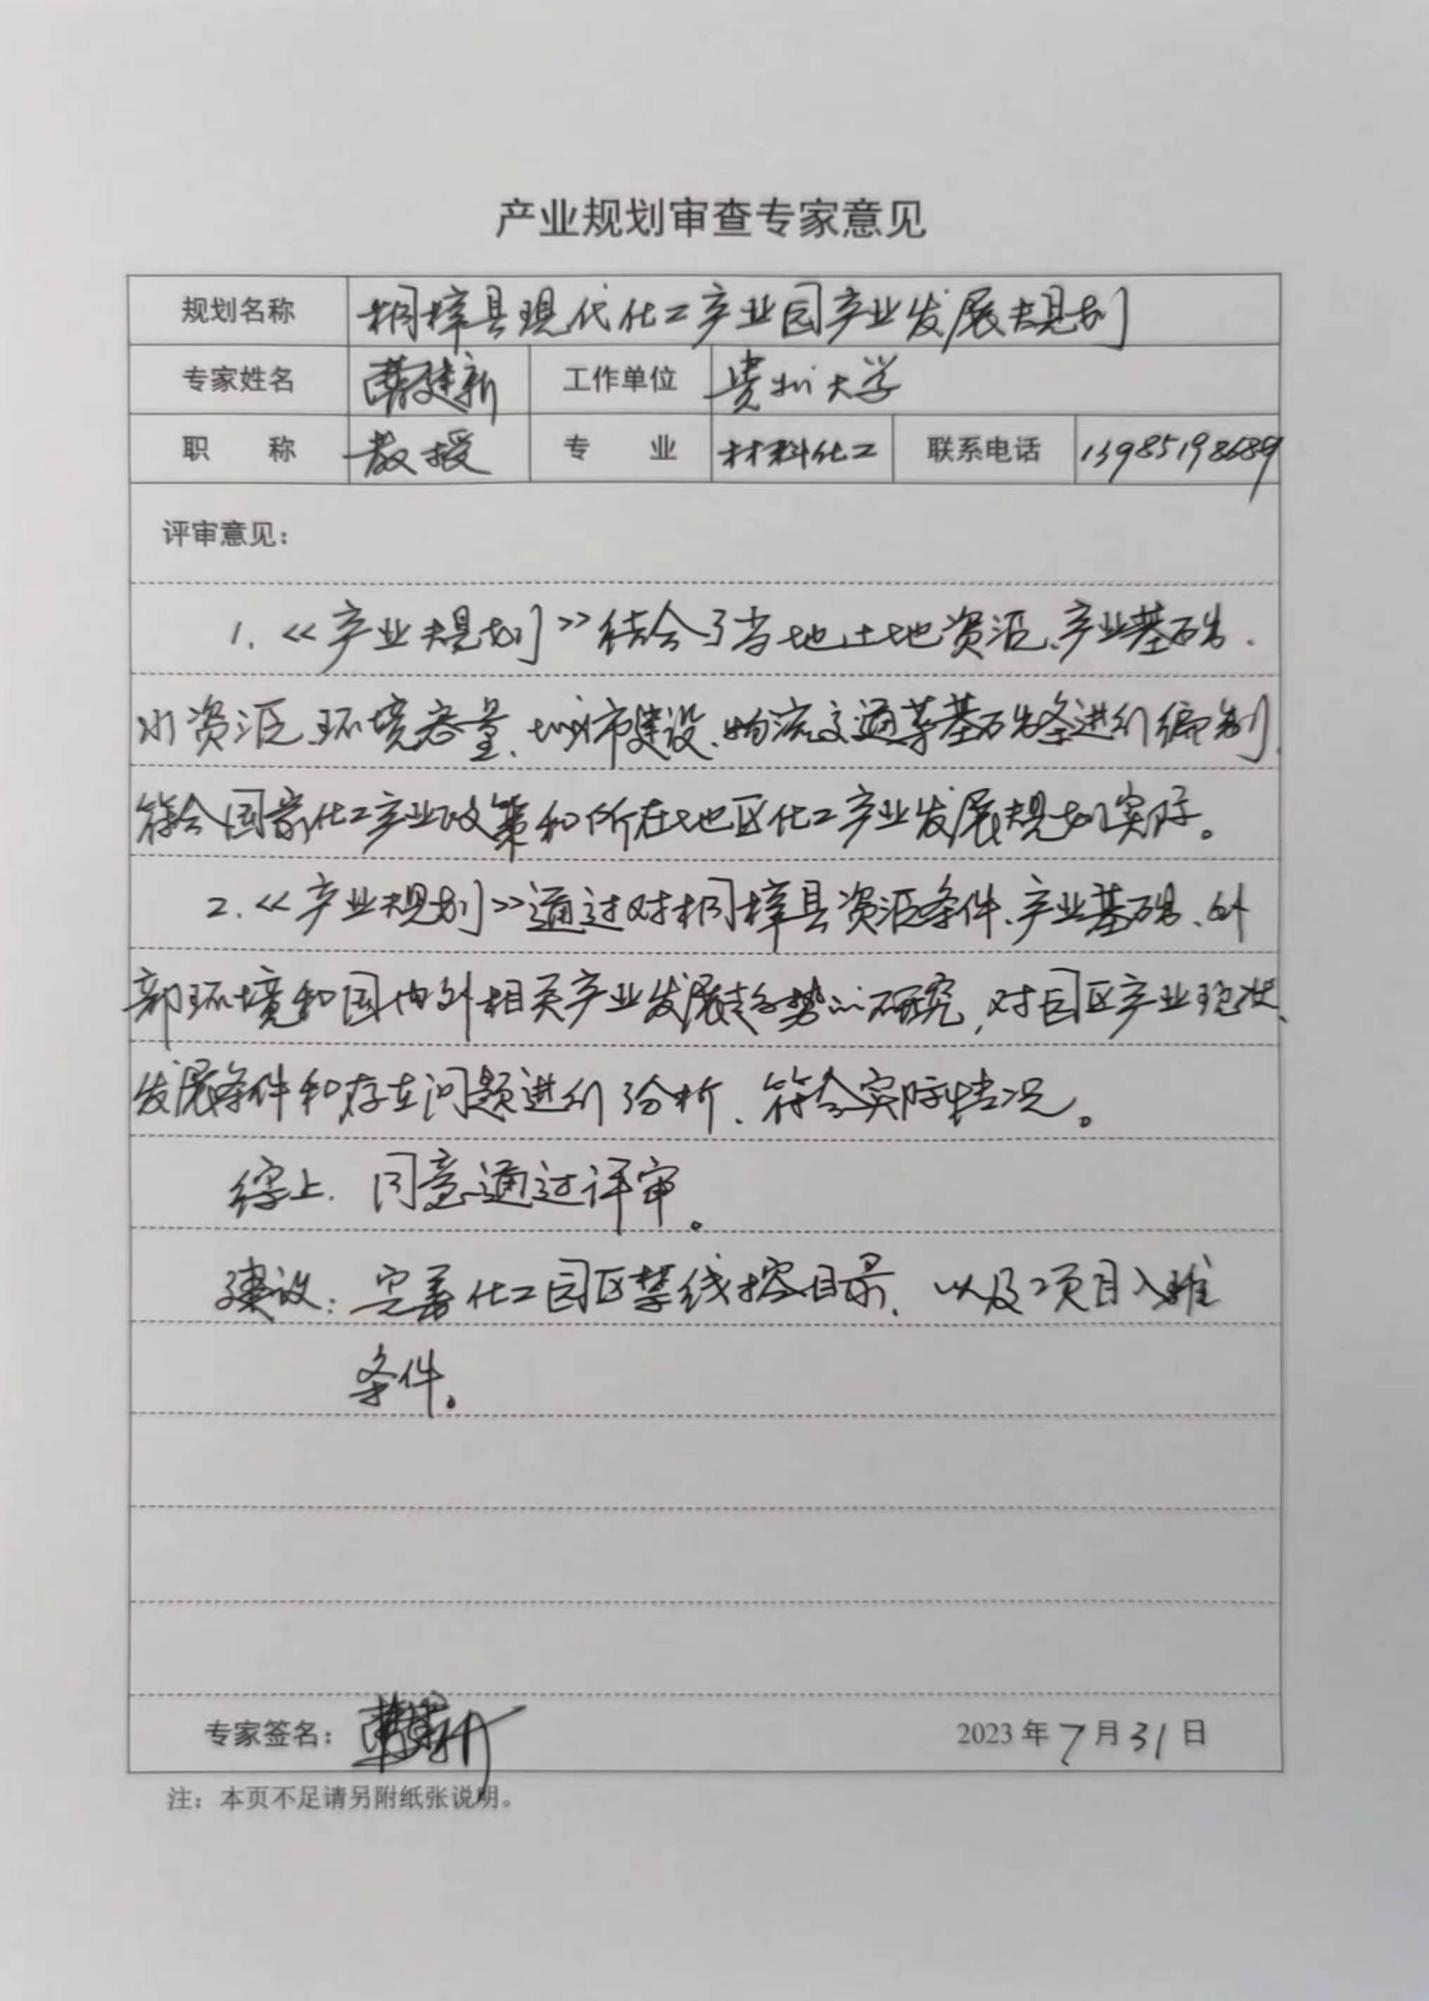 产业规划审查专家意见
规划名称 桐梓县现代化工产业园产业发展规划
专家姓名 曹建新 工作单位 贵州大学
职 称 教授 专 业 材料化工 联系电话 13985198689
评审意见：
1.《产业规划》结合了当地土地资源、产业基础、
水资源、环境容量、城市建设、物流交通等基础条进行编制，
符合国家化工产业政策和所在地区化工产业发展规划实际。
2.《产业规划》通过对桐梓县资源条件、产业基础、外
部环境和国内外相关产业发展趋势的研究，对园区产业现状、
发展条件和存在问题进行了分析，符合实际情况。
综上，同意通过评审。
建议：完善化工园区禁线控目录，以及项目入准
条件。
专家签名：曹建新 2023年7月31日
注：本页不足请另附纸张说明。